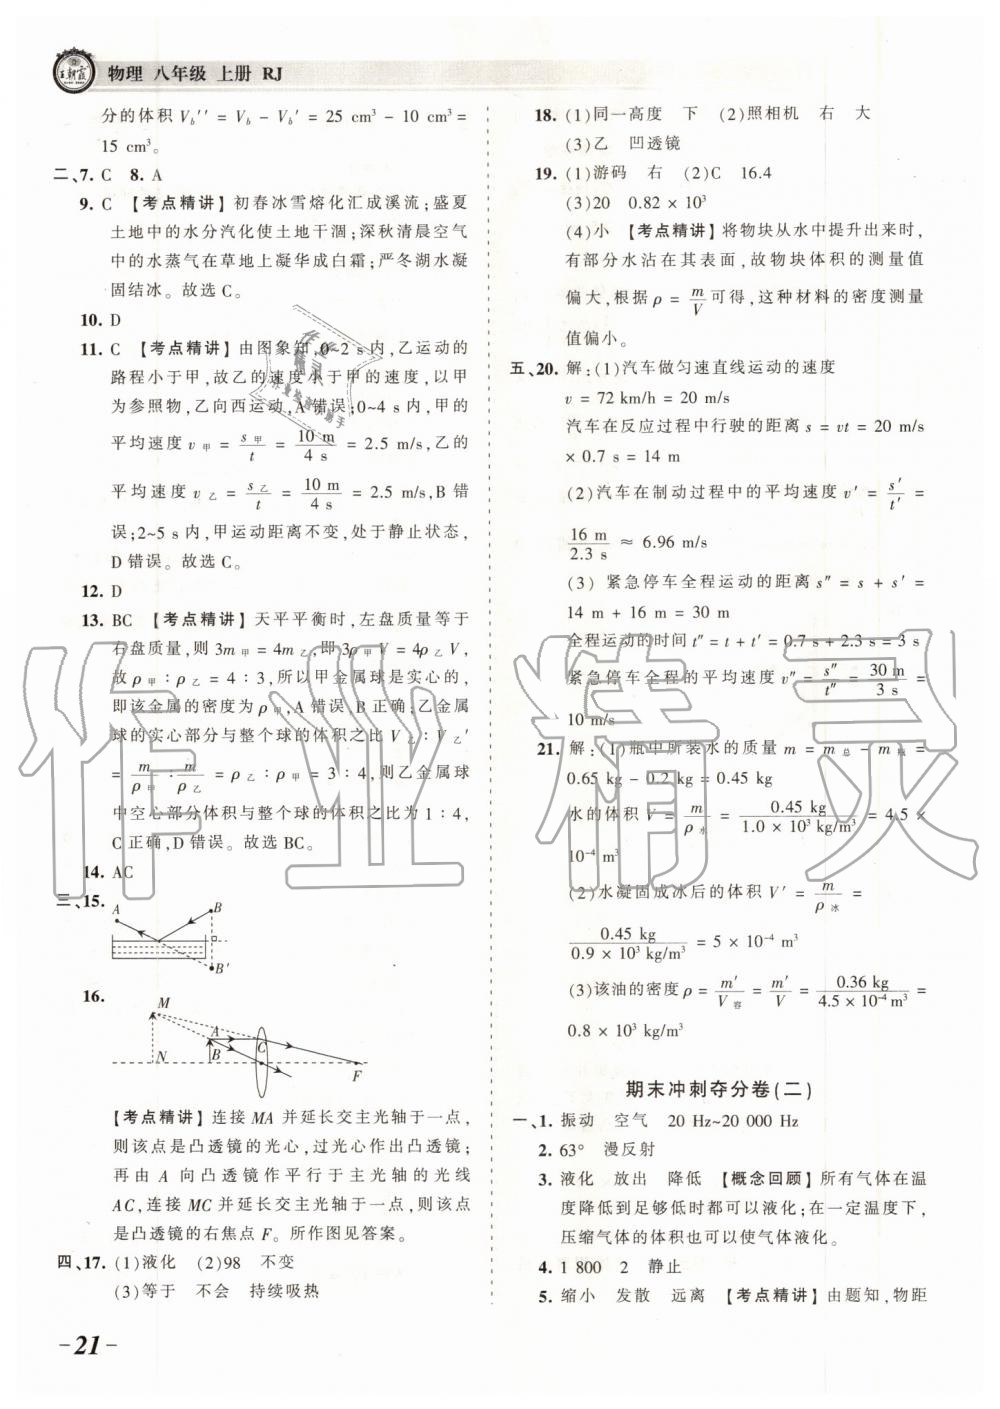 王朝霞
物理 八年级 上册 RJ
分的体积 V_b'' = V_b − V_b' = 25 cm³ − 10 cm³ =
15 cm³。
二、7. C 8. A
9. C 【考点精讲】初春冰雪熔化汇成溪流;盛夏
土地中的水分汽化使土地干涸;深秋清晨空气
中的水蒸气在草地上凝华成白霜;严冬湖水凝
固结冰。故选 C。
10. D
11. C 【考点精讲】由图象知,0~2 s 内,乙运动的
路程小于甲,故乙的速度小于甲的速度,以甲
为参照物,乙向西运动,A 错误;0~4 s 内,甲的
平均速度 v甲 = s甲/t = 10 m/4 s = 2.5 m/s,乙的
平均速度 v乙 = s乙/t = 10 m/4 s = 2.5 m/s,B 错
误;2~5 s 内,甲运动距离不变,处于静止状态,
D 错误。故选 C。
12. D
13. BC 【考点精讲】天平平衡时,左盘质量等于
右盘质量,则 3m甲 = 4m乙,即 3ρ甲V = 4ρ乙V,
故 ρ甲 : ρ乙 = 4 : 3,所以甲金属球是实心的,
即该金属的密度为 ρ甲,A 错误,B 正确;乙金属
球的实心部分与整个球的体积之比 V乙 : V乙'
= m/ρ甲 : m/ρ乙 = ρ乙 : ρ甲 = 3 : 4,则乙金属球
中空心部分体积与整个球的体积之比为 1 : 4,
C 正确,D 错误。故选 BC。
14. AC
三、15.
A B
B'
16.
M
A C
N B F
【考点精讲】连接 MA 并延长交主光轴于一点,
则该点是凸透镜的光心,过光心作出凸透镜;
再由 A 向凸透镜作平行于主光轴的光线
AC,连接 MC 并延长交主光轴于一点,则该点
是凸透镜的右焦点 F。所作图见答案。
四、17. (1)液化 (2)98 不变
(3)等于 不会 持续吸热
18. (1)同一高度 下 (2)照相机 右 大
(3)乙 凹透镜
19. (1)游码 右 (2)C 16.4
(3)20 0.82 × 10³
(4)小 【考点精讲】将物块从水中提升出来时,
有部分水沾在其表面,故物块体积的测量值
偏大,根据 ρ = m/V 可得,这种材料的密度测量
值偏小。
五、20. 解:(1)汽车做匀速直线运动的速度
v = 72 km/h = 20 m/s
汽车在反应过程中行驶的距离 s = vt = 20 m/s
× 0.7 s = 14 m
(2)汽车在制动过程中的平均速度 v' = s'/t' =
16 m/2.3 s ≈ 6.96 m/s
(3) 紧急停车全程运动的距离 s″ = s + s' =
14 m + 16 m = 30 m
全程运动的时间 t″ = t + t' = 0.7 s + 2.3 s = 3 s
紧急停车全程的平均速度 v″ = s″/t″ = 30 m/3 s =
10 m/s
21. 解:(1)瓶中所装水的质量 m = m总 − m瓶 =
0.65 kg − 0.2 kg = 0.45 kg
水的体积 V = m/ρ水 = 0.45 kg/1.0 × 10³ kg/m³ = 4.5 ×
10⁻⁴ m³
(2)水凝固成冰后的体积 V' = m/ρ冰 =
0.45 kg/0.9 × 10³ kg/m³ = 5 × 10⁻⁴ m³
(3)该油的密度 ρ = m'/V容 = m'/V = 0.36 kg/4.5 × 10⁻⁴ m³ =
0.8 × 10³ kg/m³
期末冲刺夺分卷(二)
一、1. 振动 空气 20 Hz~20 000 Hz
2. 63° 漫反射
3. 液化 放出 降低 【概念回顾】所有气体在温
度降低到足够低时都可以液化;在一定温度下,
压缩气体的体积也可以使气体液化。
4. 1 800 2 静止
5. 缩小 发散 远离 【考点精讲】由题知,物距
21
作业精灵